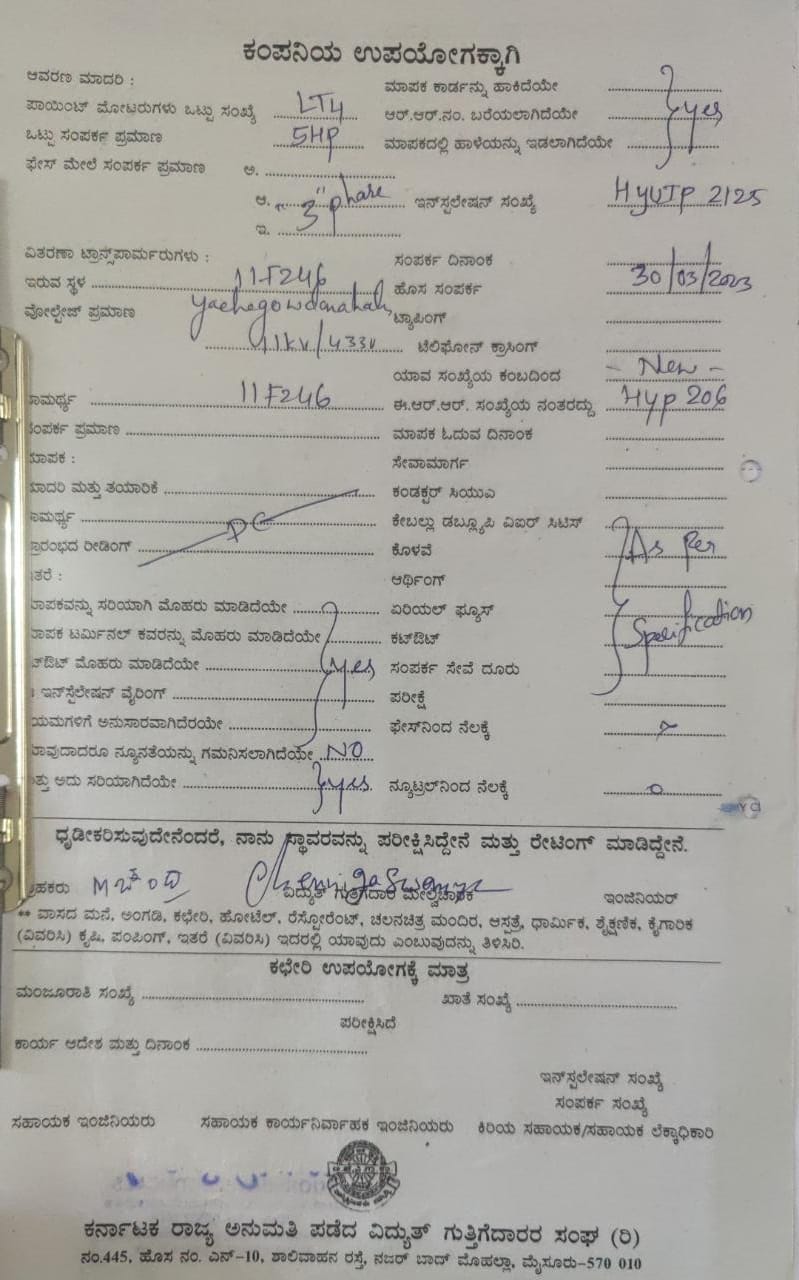 ಕಂಪನಿಯ ಉಪಯೋಗಕ್ಕಾಗಿ
ಆವರಣ ಮಾದರಿ : ಮಾಪಕ ಕಾರ್ಡನ್ನು ಹಾಕಿದೆಯೇ
ಪಾಯಿಂಟ್ ಮೋಟರುಗಳು ಒಟ್ಟು ಸಂಖ್ಯೆ LT4 ಆರ್.ಆರ್.ನಂ. ಬರೆಯಲಾಗಿದೆಯೇ yes
ಒಟ್ಟು ಸಂಪರ್ಕ ಪ್ರಮಾಣ 5HP ಮಾಪಕದಲ್ಲಿ ಹಾಳೆಯನ್ನು ಇಡಲಾಗಿದೆಯೇ
ಫೇಸ್ ಮೇಲೆ ಸಂಪರ್ಕ ಪ್ರಮಾಣ ಅ.
ಆ. "3" phase ಇನ್‌ಸ್ಟಲೇಷನ್ ಸಂಖ್ಯೆ HYUIP 2125
ಇ.
ವಿತರಣಾ ಟ್ರಾನ್ಸ್‌ಪಾರ್ಮರುಗಳು : ಸಂಪರ್ಕ ದಿನಾಂಕ
ಇರುವ ಸ್ಥಳ 11F246 ಹೊಸ ಸಂಪರ್ಕ 30/03/2023
ವೋಲ್ಟೇಜ್ ಪ್ರಮಾಣ Yachegowdanahally ಟ್ಯಾಪಿಂಗ್
11KV/433V ಟೆಲಿಫೋನ್ ಕ್ರಾಸಿಂಗ್
ಯಾವ ಸಂಖ್ಯೆಯ ಕಂಬದಿಂದ - New -
ಾಮರ್ಥ್ಯ 11F246 ಈ.ಆರ್.ಆರ್. ಸಂಖ್ಯೆಯ ನಂತರದ್ದು HYP 206
ಂಪರ್ಕ ಪ್ರಮಾಣ ಮಾಪಕ ಓದುವ ದಿನಾಂಕ
ಮಾಪಕ : ಸೇವಾಮಾರ್ಗ
ಮಾದರಿ ಮತ್ತು ತಯಾರಿಕೆ ಕಂಡಕ್ಟರ್ ಸಿಯುಎ
ಾಮರ್ಥ್ಯ DC ಕೇಬಲ್ಲು ಡಬ್ಲ್ಯೂಪಿ ವಿಐರ್ ಸಿಟಿಸ್
ಪ್ರಾರಂಭದ ರೀಡಿಂಗ್ ಕೊಳವೆ As Per
ತರೆ : ಆರ್ಥಿಂಗ್
ಮಾಪಕವನ್ನು ಸರಿಯಾಗಿ ಮೊಹರು ಮಾಡಿದೆಯೇ ಏರಿಯಲ್ ಫ್ಯೂಸ್
ಮಾಪಕ ಟರ್ಮಿನಲ್ ಕವರನ್ನು ಮೊಹರು ಮಾಡಿದೆಯೇ ಕಟ್‌ಔಟ್ Specification
ಟ್‌ಔಟ್ ಮೊಹರು ಮಾಡಿದೆಯೇ yes ಸಂಪರ್ಕ ಸೇವೆ ದೂರು
ಇನ್‌ಸ್ಟೆಲೇಷನ್ ವೈರಿಂಗ್ ಪರೀಕ್ಷೆ
ಯಮಗಳಿಗೆ ಅನುಸಾರವಾಗಿದೆರಯೇ ಫೇಸ್‌ನಿಂದ ನೆಲಕ್ಕೆ
ಯಾವುದಾದರೂ ನ್ಯೂನತೆಯನ್ನು ಗಮನಿಸಲಾಗಿದೆಯೇ NO
ತ್ತು ಅದು ಸರಿಯಾಗಿದೆಯೇ yes ನ್ಯೂಟ್ರಲ್‌ನಿಂದ ನೆಲಕ್ಕೆ 0
ಧೃಡೀಕರಿಸುವುದೇನೆಂದರೆ, ನಾನು ಸ್ಥಾವರವನ್ನು ಪರೀಕ್ಷಿಸಿದ್ದೇನೆ ಮತ್ತು ರೇಟಿಂಗ್ ಮಾಡಿದ್ದೇನೆ.
ಾಹಕರು ವಿದ್ಯುತ್ ಗುತ್ತಿಗೆದಾರ ಮೇಲ್ವಿಚಾರಕ ಇಂಜಿನಿಯರ್
** ವಾಸದ ಮನೆ, ಅಂಗಡಿ, ಕಛೇರಿ, ಹೋಟೆಲ್, ರೆಸ್ಟೋರೆಂಟ್, ಚಲನಚಿತ್ರ ಮಂದಿರ, ಆಸ್ಪತ್ರೆ, ಧಾರ್ಮಿಕ, ಶೈಕ್ಷಣಿಕ, ಕೈಗಾರಿಕ
(ವಿವರಿಸಿ) ಕೃಷಿ, ಪಂಪಿಂಗ್, ಇತರೆ (ವಿವರಿಸಿ) ಇದರಲ್ಲಿ ಯಾವುದು ಎಂಬುವುದನ್ನು ತಿಳಿಸಿರಿ.
ಕಛೇರಿ ಉಪಯೋಗಕ್ಕೆ ಮಾತ್ರ
ಮಂಜೂರಾತಿ ಸಂಖ್ಯೆ ಖಾತೆ ಸಂಖ್ಯೆ
ಪರೀಕ್ಷಿಸಿದೆ
ಕಾರ್ಯ ಆದೇಶ ಮತ್ತು ದಿನಾಂಕ
ಇನ್‌ಸ್ಟಲೇಷನ್ ಸಂಖ್ಯೆ
ಸಂಪರ್ಕ ಸಂಖ್ಯೆ
ಸಹಾಯಕ ಇಂಜಿನಿಯರು ಸಹಾಯಕ ಕಾರ್ಯನಿರ್ವಾಹಕ ಇಂಜಿನಿಯರು ಕಿರಿಯ ಸಹಾಯಕ/ಸಹಾಯಕ ಲೆಕ್ಕಾಧಿಕಾರಿ
ಕರ್ನಾಟಕ ರಾಜ್ಯ ಅನುಮತಿ ಪಡೆದ ವಿದ್ಯುತ್ ಗುತ್ತಿಗೆದಾರರ ಸಂಘ (ರಿ)
ನಂ.445, ಹೊಸ ನಂ. ಎನ್-10, ಶಾಲಿವಾಹನ ರಸ್ತೆ, ನಜರ್ ಬಾದ್ ಮೊಹಲ್ಲಾ, ಮೈಸೂರು-570 010